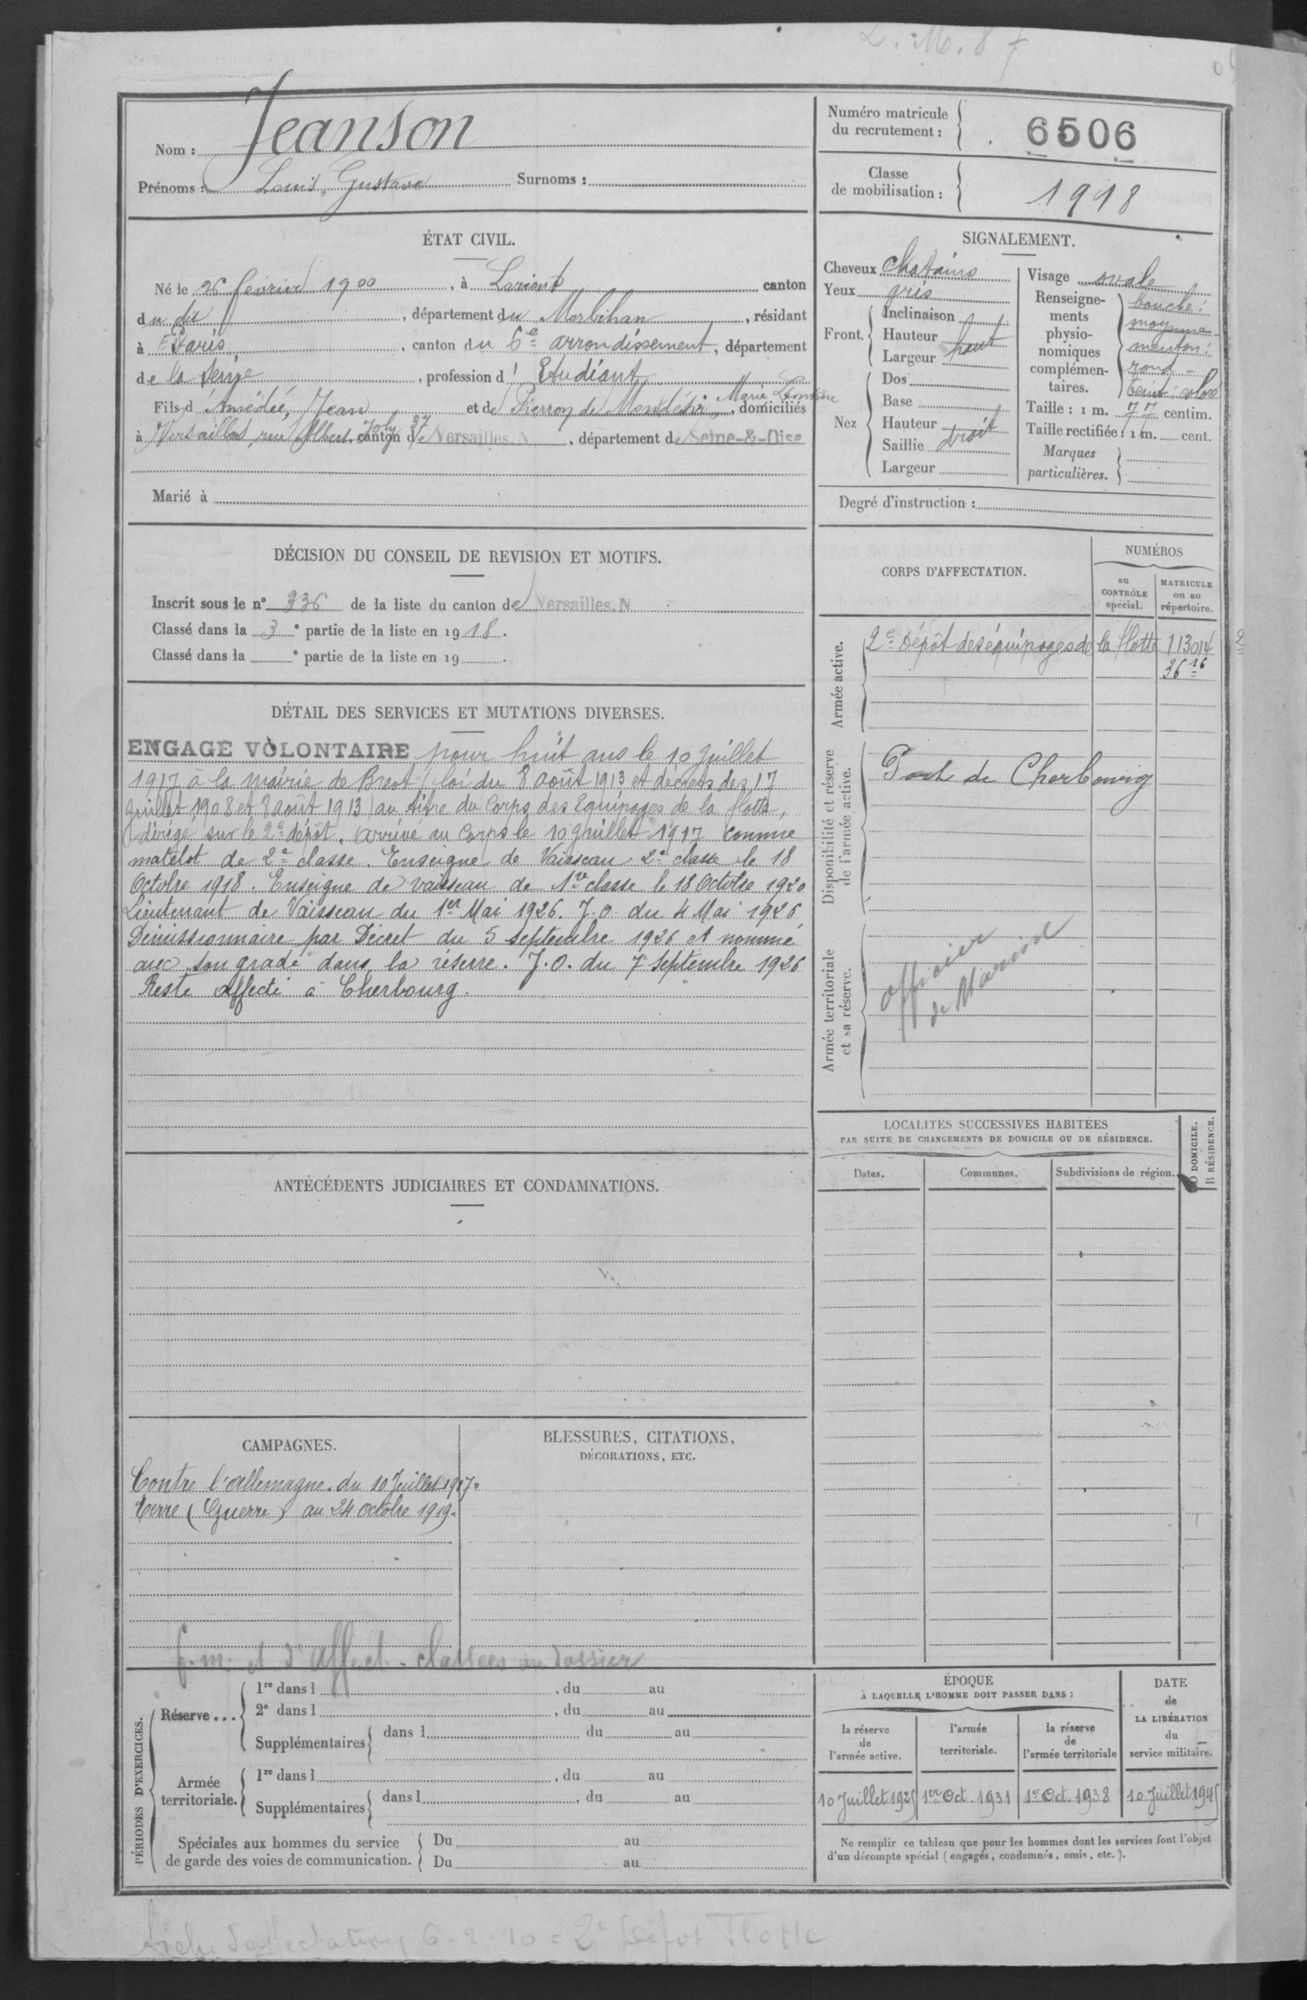 Nom : Jeanson
Prénoms : Louis, Gustave Surnoms :
ÉTAT CIVIL.
Né le 26 février 1900, à Lorient canton
du dit, département du Morbihan, résidant
à Paris, canton du 6e arrondissement, département
de la Seine, profession d'Etudiant
Fils d'Amédée, Jean et de Pierron de Mondésir, Marie Léontine, domiciliés
à Versailles, rue Albert Joly 37 canton de Versailles. N, département de Seine-&-Oise
Marié à
DÉCISION DU CONSEIL DE REVISION ET MOTIFS.
Inscrit sous le n° 336 de la liste du canton de Versailles. N
Classé dans la 3e partie de la liste en 1918.
Classé dans la e partie de la liste en 19 .
DÉTAIL DES SERVICES ET MUTATIONS DIVERSES.
ENGAGÉ VOLONTAIRE pour huit ans le 10 Juillet
1917 à la mairie de Brest (loi du 8 août 1913 et décrets des 17
Juillet 1908 et 8 août 1913) au titre du Corps des Equipages de la flotte,
dirigé sur le 2e dépôt. Arrivé au Corps le 10 Juillet 1917 comme
matelot de 2e classe. Enseigne de Vaisseau 2e classe le 18
Octobre 1918. Enseigne de vaisseau de 1re classe le 18 Octobre 1920
Lieutenant de Vaisseau du 1er Mai 1926. J.O. du 4 Mai 1926
Démissionnaire par Décret du 5 Septembre 1926 et nommé
avec son grade dans la réserve. J.O. du 7 Septembre 1926
Reste affecté à Cherbourg.
ANTÉCÉDENTS JUDICIAIRES ET CONDAMNATIONS.
CAMPAGNES.
Contre l'Allemagne. du 10 Juillet 1917.
Terre (Guerre) au 24 octobre 1919.
BLESSURES, CITATIONS,
DÉCORATIONS, ETC.
f.m. et d'affect. classées au dossier
PÉRIODES D'EXERCICES.
Réserve...
1re dans l , du au
2e dans l , du au
Supplémentaires dans l du au
Armée territoriale.
1re dans l , du au
Supplémentaires dans l , du au
Spéciales aux hommes du service
de garde des voies de communication.
Du au
Du au
Numéro matricule
du recrutement : 6506
Classe
de mobilisation : 1918
SIGNALEMENT.
Cheveux chatains
Yeux gris
Front. Inclinaison
Hauteur haut
Largeur
Nez Dos
Base
Hauteur droit
Saillie
Largeur
Visage ovale
Renseigne-
ments
physio-
nomiques
complémen-
taires.
bouche :
moyenne
menton :
rond -
teint : coloré
Taille : 1 m. 77 centim.
Taille rectifiée : 1 m. cent.
Marques
particulières.
Degré d'instruction :
CORPS D'AFFECTATION.
NUMÉROS
au
CONTRÔLE
spécial.
MATRICULE
ou au
répertoire.
Armée active.
2e Dépôt des équipages de la flotte 113014 2
36
Disponibilité et réserve
de l'armée active.
Port de Cherbourg
Armée territoriale
et sa réserve.
Officier
de Marine
LOCALITÉS SUCCESSIVES HABITÉES
PAR SUITE DE CHANGEMENTS DE DOMICILE OU DE RÉSIDENCE.
Dates.
Communes.
Subdivisions de région.
D DOMICILE.
R RÉSIDENCE.
ÉPOQUE
À LAQUELLE L'HOMME DOIT PASSER DANS :
la réserve
de
l'armée active.
l'armée
territoriale.
la réserve
de
l'armée territoriale
DATE
de
LA LIBÉRATION
du
service militaire.
10 Juillet 1925
1er Oct. 1931
1er Oct. 1938
10 Juillet 1945
Ne remplir ce tableau que pour les hommes dont les services font l'objet
d'un décompte spécial (engagés, condamnés, omis, etc.).